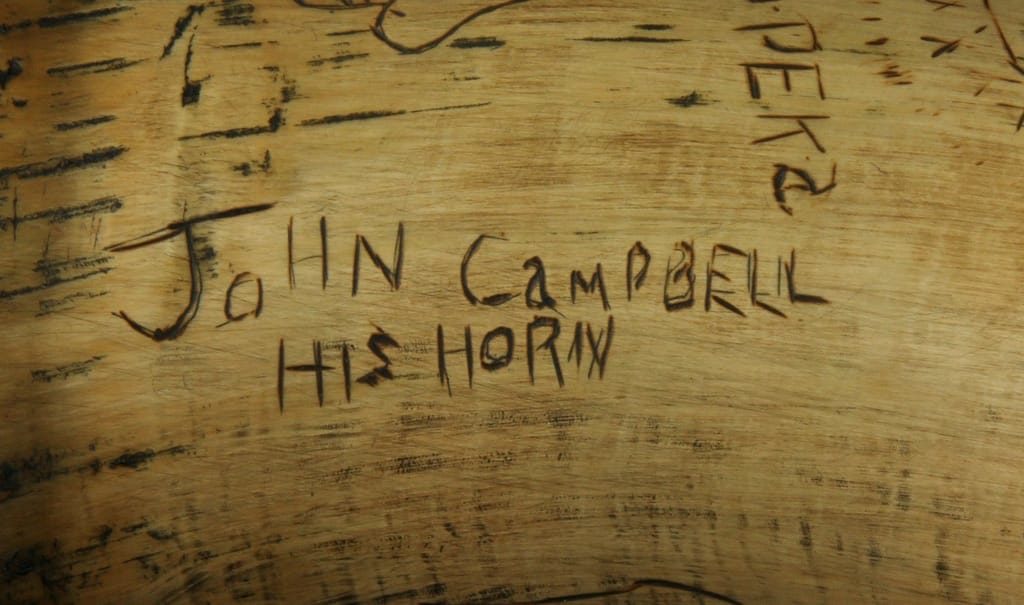 JoHN CamPBELL
HIS HORN